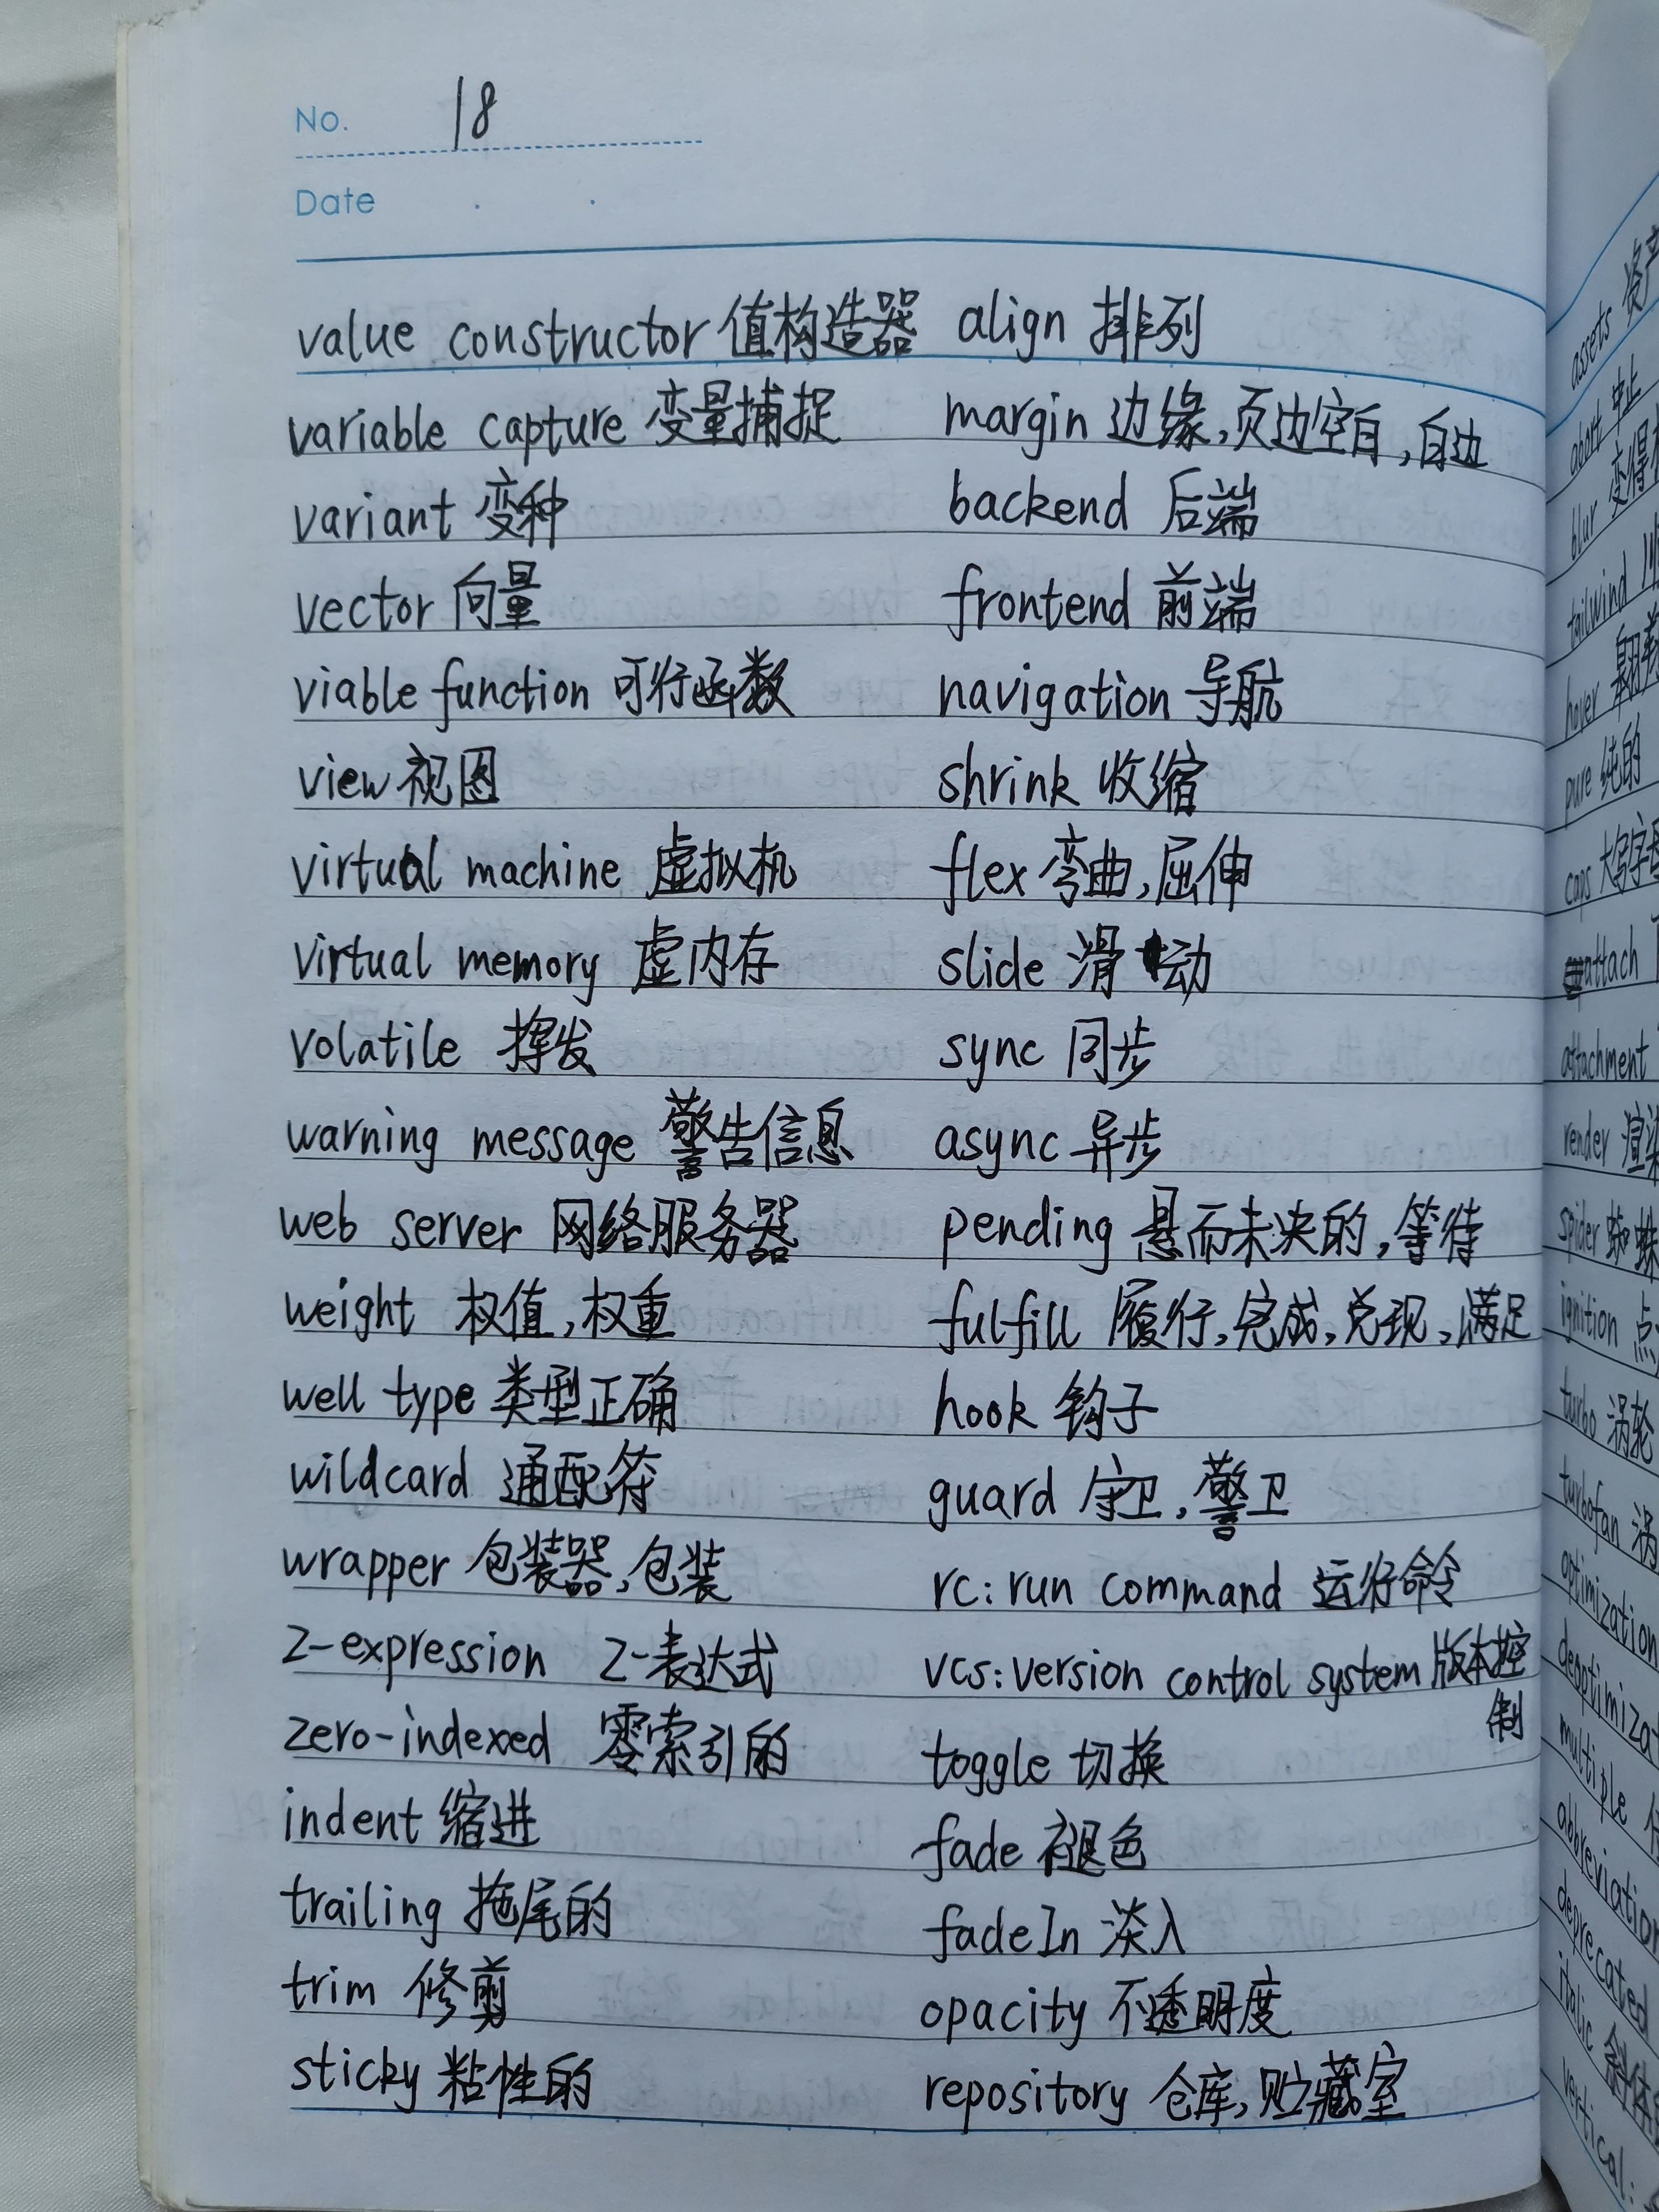 No. 18
Date
value constructor 值构造器
variable capture 变量捕捉
variant 变种
vector 向量
viable function 可行函数
view 视图
virtual machine 虚拟机
virtual memory 虚内存
volatile 挥发
warning message 警告信息
web server 网络服务器
weight 权值,权重
well type 类型正确
wildcard 通配符
wrapper 包装器,包装
Z-expression Z-表达式
zero-indexed 零索引的
indent 缩进
trailing 拖尾的
trim 修剪
sticky 粘性的
align 排列
margin 边缘,页边空白,白边
backend 后端
frontend 前端
navigation 导航
shrink 收缩
flex 弯曲,屈伸
slide 滑动
sync 同步
async 异步
pending 悬而未决的,等待
fulfill 履行,完成,兑现,满足
hook 钩子
guard 守卫,警卫
rc:run command 运行命令
vcs:version control system 版本控
制
toggle 切换
fade 褪色
fadeIn 淡入
opacity 不透明度
repository 仓库,贮藏室
assets 资产
abort 中止
blur 变得
tailwind
hover 翱翔
pure 纯的
caps 大写字母
attach
attachment
render 渲染
spider 蜘蛛
ignition 点
turbo 涡轮
turbofan 涡
optimization
deoptimizat
multiple
abbreviation
deprecated
italic 斜体
vertical: